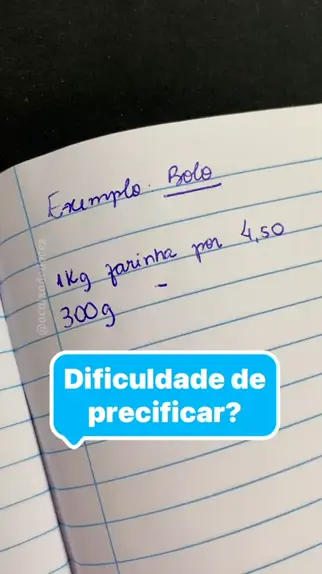 Exemplo. Bolo
1Kg farinha por 4,50
300g -
Dificuldade de
precificar?